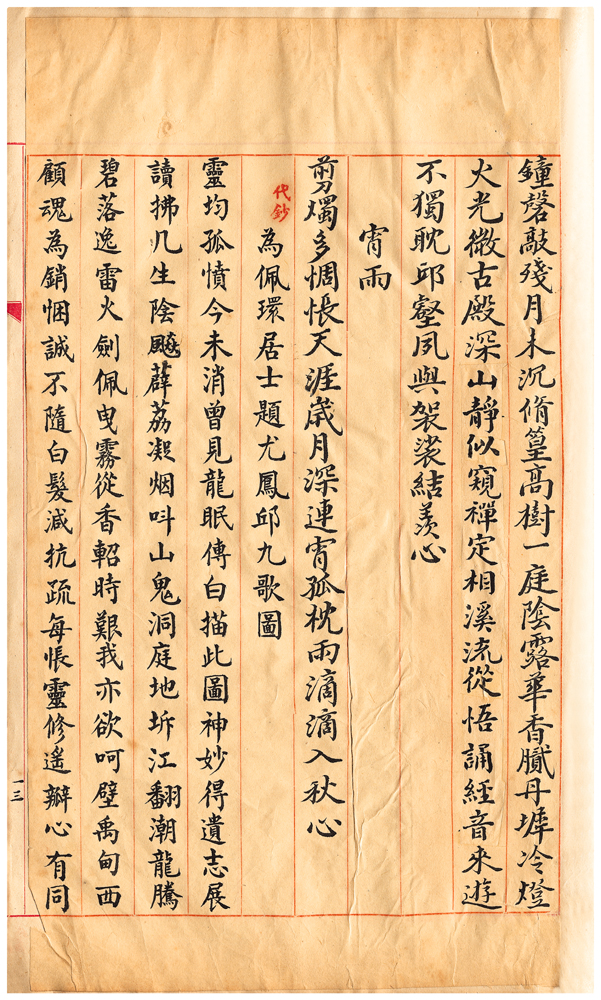 鐘磬敲殘月未沉脩篁高樹一庭陰露華香膩丹墀冷燈
火光微古殿深山靜似窺禪定相溪流從悟誦經音來遊
不獨耽邱壑夙與袈裟結羨心
宵雨
剪燭多惆悵天涯歲月深連宵孤枕雨滴滴入秋心
代鈔
為佩環居士題尤鳳邱九歌圖
靈均孤憤今未消曾見龍眠傳白描此圖神妙得遺志展
讀拂几生陰飈薜荔凝烟叫山鬼洞庭地坼江翻潮龍騰
碧落逸雷火劍佩曳霧從香軺時艱我亦欲呵壁禹甸西
顧魂為銷悃誠不隨白髮減抗疏每悵靈修遙瓣心有同
一三